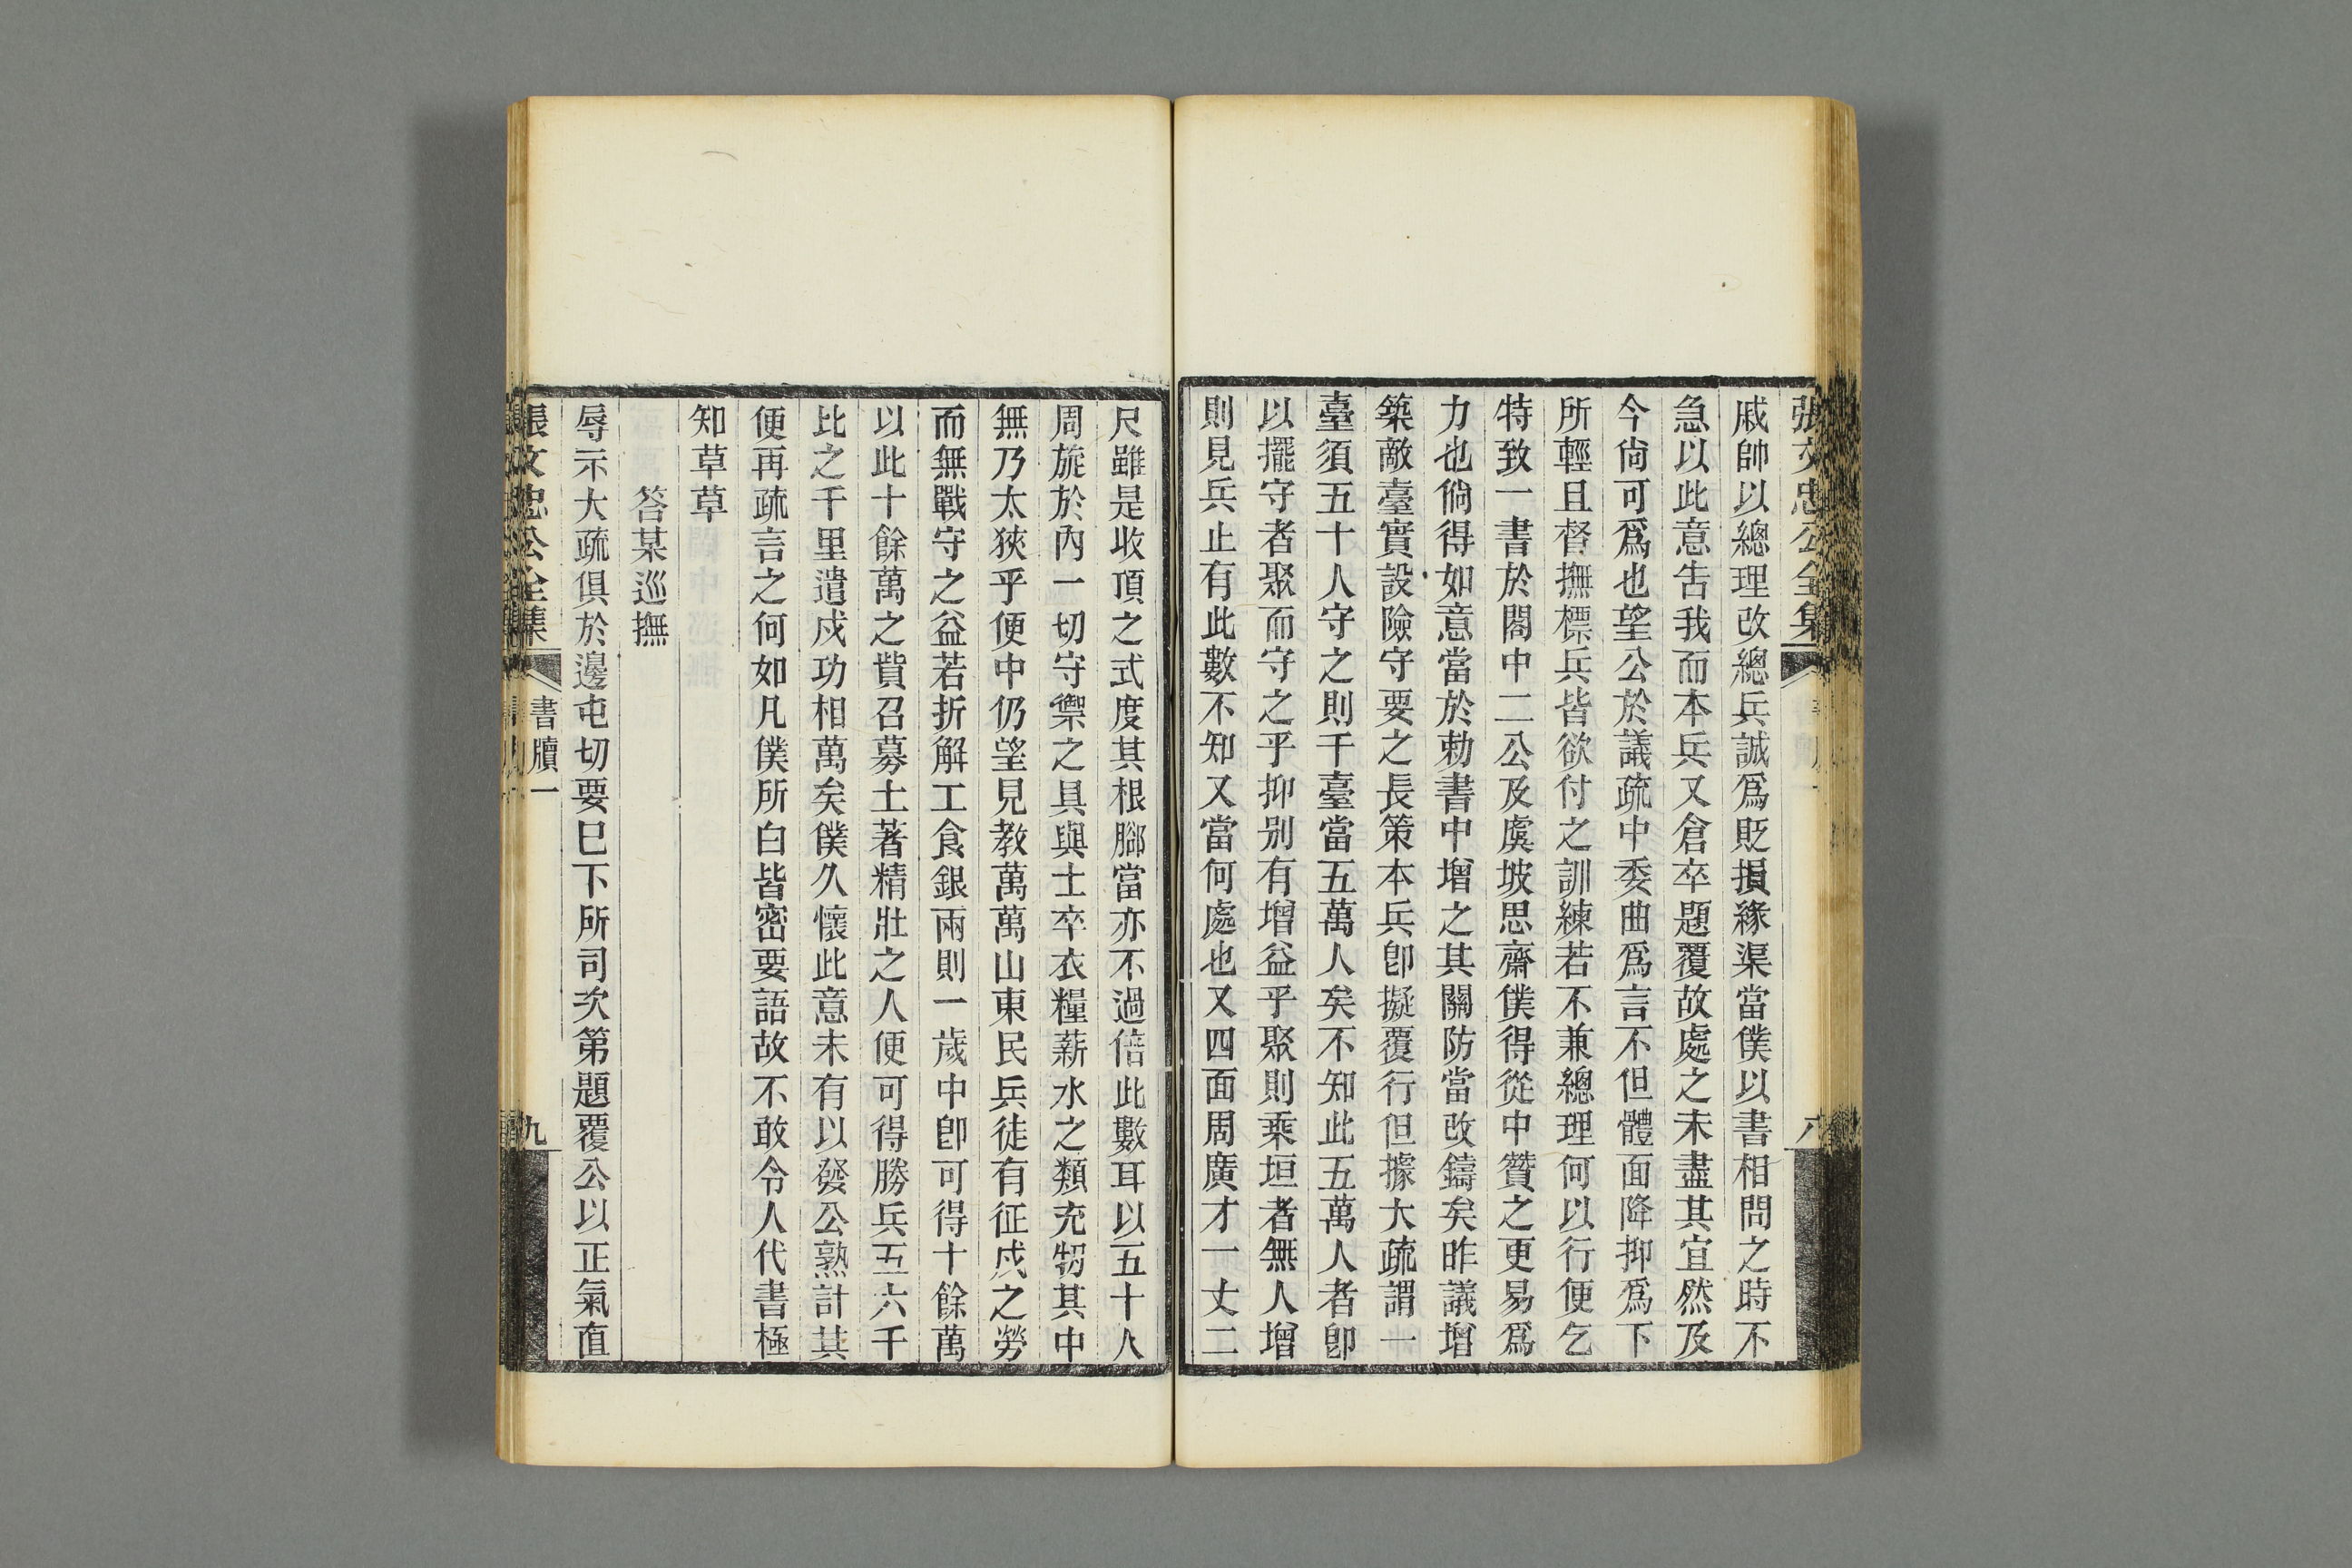 張文忠公全集
戚帥以總理改總兵誠爲貶損緣渠當僕以書相問之時不
急以此意告我而本兵又倉卒題覆故處之未盡其宜然及
今尙可爲也望公於議疏中委曲爲言不但體面降抑爲下
所輕且督撫標兵皆欲付之訓練若不兼總理何以行便乞
特致一書於閣中二公及虞坡思齋僕得從中贊之更易爲
力也倘得如意當於勅書中增之其關防當改鑄矣昨議增
築敵臺實設險守要之長策本兵卽擬覆行但據大疏謂一
臺須五十人守之則千臺當五萬人矣不知此五萬人者卽
以擺守者聚而守之乎抑别有增益乎聚則乘垣者無人增
則見兵止有此數不知又當何處也又四面周廣才一丈二
尺雖是收頂之式度其根腳當亦不過倍此數耳以五十人
周旋於內一切守禦之具與士卒衣糧薪水之類充牣其中
無乃太狹乎便中仍望見教萬萬山東民兵徒有征戍之勞
而無戰守之益若折解工食銀兩則一歲中卽可得十餘萬
以此十餘萬之貲召募土著精壯之人便可得勝兵五六千
比之千里遣戍功相萬矣僕久懷此意未有以發公熟計其
便再疏言之何如凡僕所白皆密要語故不敢令人代書極
知草草
答某巡撫
辱示大疏俱於邊屯切要巳下所司次第題覆公以正氣直
張文忠公全集
書牘一
九